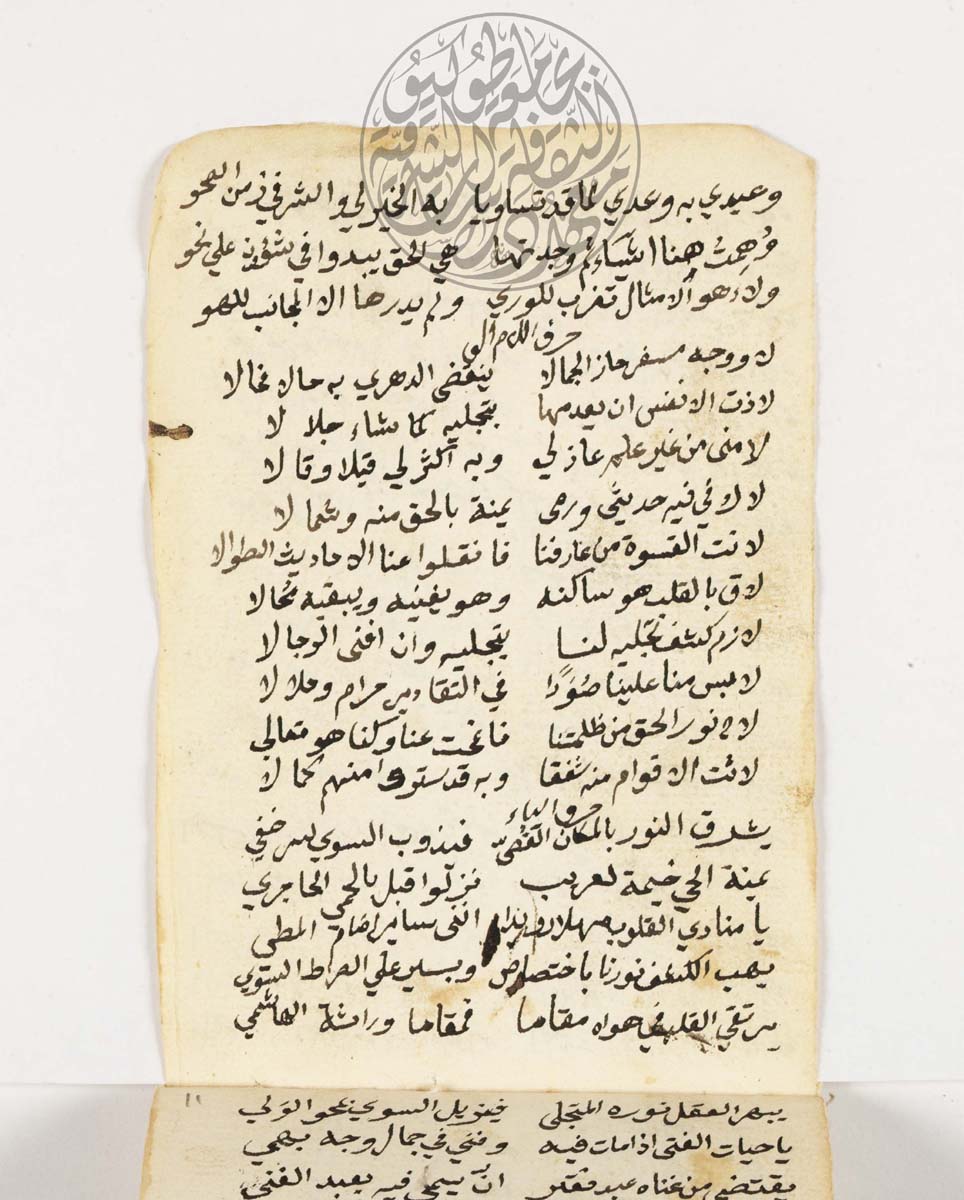 وعيدي به وعدي لما قد تساويا به الخير لي والشر في زمن الصحو
وهمت هنا اشياء ثم وجدتها هي الحق يبدوا في شؤون علي نحو
ولاء هو الامثال تضرب للوري ولم يدرها الا المجانب للهو
حرف اللام الف
لا ووجه مسفر حاز الجمالا ينقضي الدهر بي به حالا فحالا
لاذت الانفس ان يعدمها بتجليه كما شاء جلالا
لامني من غير علم عاذلي وبه اكثر لي قيلا وقالا
لاك في فيه حديثي ورمي يمنة بالحق منه وشمالا
لانت القسوة من عارفنا فانقلوا عنا الاحاديث الطوالا
لاق بالقلب هو ساكنه وهو يفنيه ويبقيه محالا
لازم كشف تجليه لنا بتجليه وان افني الرجالا
لابس منا علينا صورا في التقادير حرام وحلالا
لاح نور الحق من ظلمتنا فانمحت عنا وكنا هو تعالي
لائت الاقوام منه شفقا وبه قد ستروا منهم كمالا
حرف الياء
يشرق النور بالمكان القصي فيذوب السوي لسر خفي
يمنة الحي خيمة لعريب نزلوا قبل بالحمي الحاجري
يا منادي القلوب مهلا رويدا انني ساير امام المطي
يهب الكشف نورنا باختصاص ويسير علي الصراط السوي
يرتقي القلب في هواه مقاما فمقاما وراثة الهاشمي
١١
يبهر العقل نوره المتجلي فيزيل السوي بمحو الولي
يا حيات الفتي اذا مات فيه وفني في جمال وجه بهي
يقتضي من غناه عبد فقر ان يسمي فيه بعبد الغني